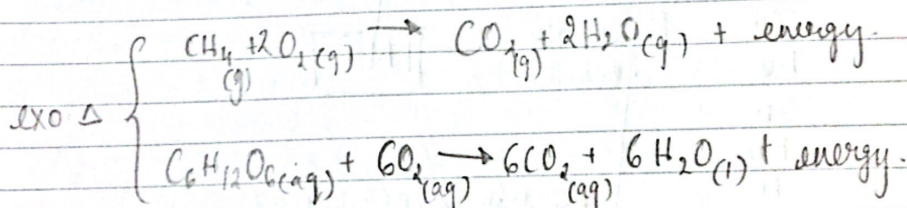 CH₄(g) + 2O₂(g) → CO₂(g) + 2H₂O(g) + energy.
exo Δ {
C₆H₁₂O₆(aq) + 6O₂(aq) → 6CO₂(aq) + 6H₂O(l) + energy.